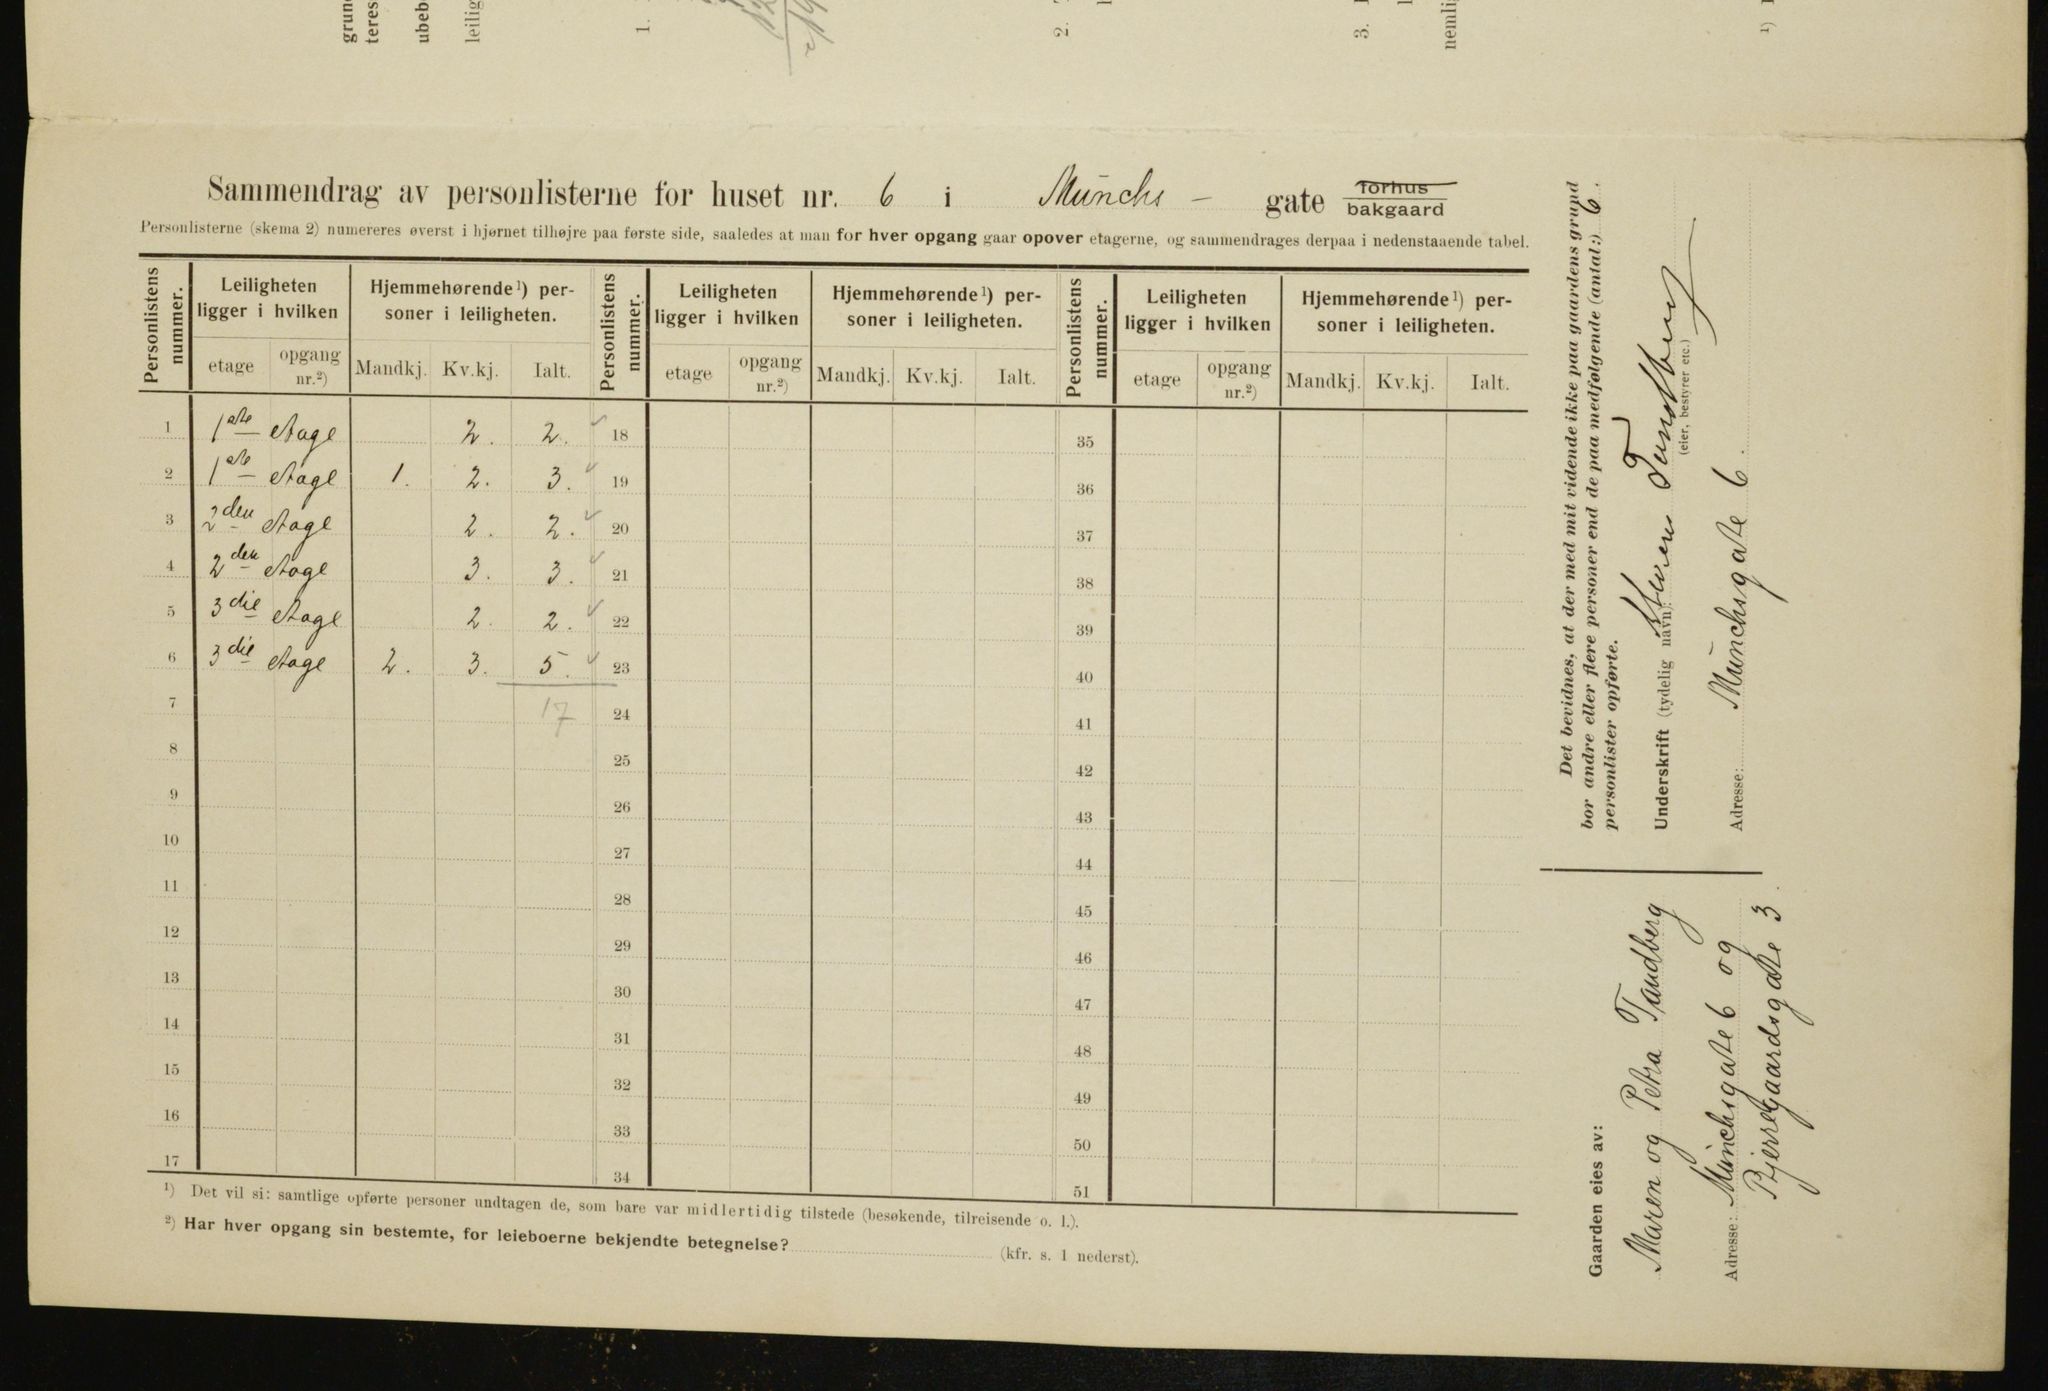 grun
teres
ubeb
leilig
1.
2.
3.
nemli
1)
Sammendrag av personlisterne for huset nr. 6 i Münchs - gate forhus
bakgaard
Personlisterne (skema 2) numereres øverst i hjørnet tilhøjre paa første side, saaledes at man for hver opgang gaar opover etagerne, og sammendrages derpaa i nedenstaaende tabel.
Personlistens nummer. Leiligheten ligger i hvilken Hjemmehørende 1) personer i leiligheten. Personlistens nummer. Leiligheten ligger i hvilken Hjemmehørende 1) personer i leiligheten. Personlistens nummer. Leiligheten ligger i hvilken Hjemmehørende 1) personer i leiligheten.
etage opgang nr.2) Mandkj. Kv.kj. Ialt. etage opgang nr.2) Mandkj. Kv.kj. Ialt. etage opgang nr.2) Mandkj. Kv.kj. Ialt.
1 1ste Etage 2. 2. 18 35
2 1ste Etage 1. 2. 3. 19 36
3 2den Etage 2. 2. 20 37
4 2den Etage 3. 3. 21 38
5 3die Etage 2. 2. 22 39
6 3die Etage 2. 3. 5. 23 40
7 17 24 41
8 25 42
9 26 43
10 27 44
11 28 45
12 29 46
13 30 47
14 31 48
15 32 49
16 33 50
17 34 51
1) Det vil si: samtlige opførte personer undtagen de, som bare var midlertidig tilstede (besøkende, tilreisende o. l.).
2) Har hver opgang sin bestemte, for leieboerne bekjendte betegnelse? (kfr. s. 1 nederst).
Det bevidnes, at der med mit vidende ikke paa gaardens grund
bor andre eller flere personer end de paa medfølgende (antal:) 6.
personlister opførte.
Underskrift (tydelig navn): Maren Tandberg
(eier, bestyrer etc.)
Adresse: Münchsgate 6.
Gaarden eies av:
Maren og Petra Tandberg
Adresse: Münchsgate 6 og
Bjerregaardsgate 3.